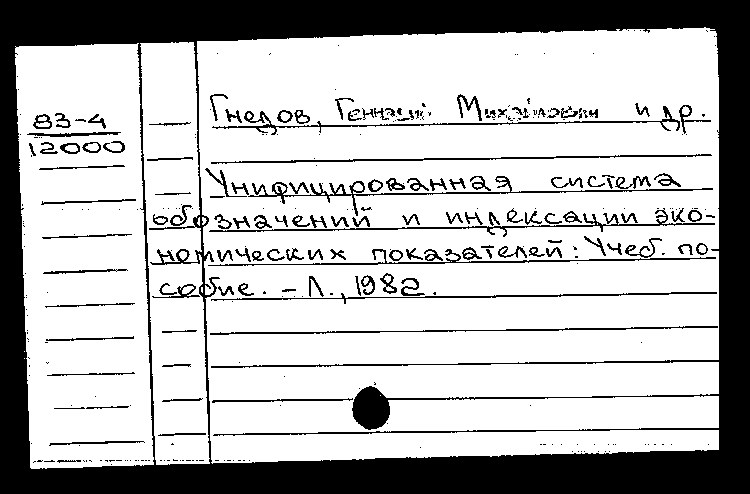 83-4
12000
Гнедов, Геннадий Михайлович и др.
Унифицированная система
обозначений и индексации эко-
номических показателей: Учеб. по-
собие. – Л., 1982.